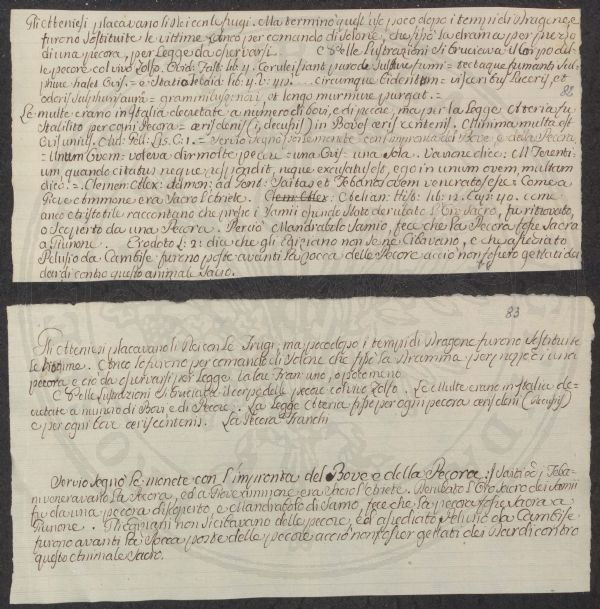 Gli Atteniesi placavano li Dei con le frugi. Ma termino quest'uso poco dopo i tempi di Dragone, e
furono sostituite le vittime. Anco per comando di Solone, che fissò la drama per prezzo
di una pecora, per Legge da osservarsi. Delle lustrazioni si bruciava il corpo del
le pecore col vivo zolfo. Ovid: Fast: lib: 4. Cerulei fiant puro de sulfure fumi = tactaque fumanti sul-
phure balet ovis. = e Statio
82
odoris sulphuris aura = graminibusq: novis, et longo murmure purgat. =
Le multe erano in Italia decretate a numero di bovi, e di pecore, ma per la Legge Ateria fu
stabilito per ogni Pecora = æris deni (i, decussis) in Bove æris centeni. Minima multa est
Ovis unius. = Servio segnò le monete con l'impronta del Bove e della Pecora
= Unum Ovem = voleva dir molte pecore = una Ovis = una sola. Varrone dice: M. Terenti-
um quando citatus neque respondit, neque excusatus est, ego in unum ovem multam
dico. = Clemen: Alex: admon: ad Gent: Saitas et Tebanos ovem veneratos esse: Come a
Giove Ammone era Sacro l'Ariete. Clem: Alex: Ælian: Hist: lib: 12. Cap: 40. come
anco Aristotile raccontano che presso i Samii essendo stato derubato l'Oro Sacro, fu ritrovato,
o scoperto da una Pecora. Perciò Mandrabolo Samio, fece che la Pecora fosse Sacra
a Giunone. Erodoto L: 2: dia che gli Egiziani non se ne cibavano, e che assediato
Pelusio da Cambise furono poste avanti la Rocca delle Pecore acciò non fossero gettati dei
dardi contro questo animale Sacro.
83
Gli Atteniesi placavano li Dei con le Frugi, ma poco dopo i tempi di Dragone furono sostituite
le vittime. Anco lo furono per comando di Solone che fissò la Dramma per prezzo di una
pecora e ciò da osservarsi per Legge
Delle lustrazioni si bruciava il corpo delle pecore col vivo zolfo. Le Multe erano in Italia de-
cretate a numero di Bovi e di Pecore. La Legge Ateria fissò per ogni pecora æris deni (decussis)
e per ogni bove æris centeni. La Pecora Franchi
Servio segnò le monete con l'impronta del Bove e della Pecora: I Saiti, e i Teba-
ni veneravano la Pecora, ed a Giove Ammone era Sacro l'Ariete. Derubato l'Oro Sacro dei Samii
fu da una pecora discoperto, e Mandrabolo di Samo, fece che la pecora fosse Sacra a
Giunone. Gli Egiziani non si cibavano delle pecore, ed assediato Pelusio da Cambise
furono avanti la Rocca poste delle pecore acciò non fosser gettati dei Dardi contro
questo Animale Sacro.